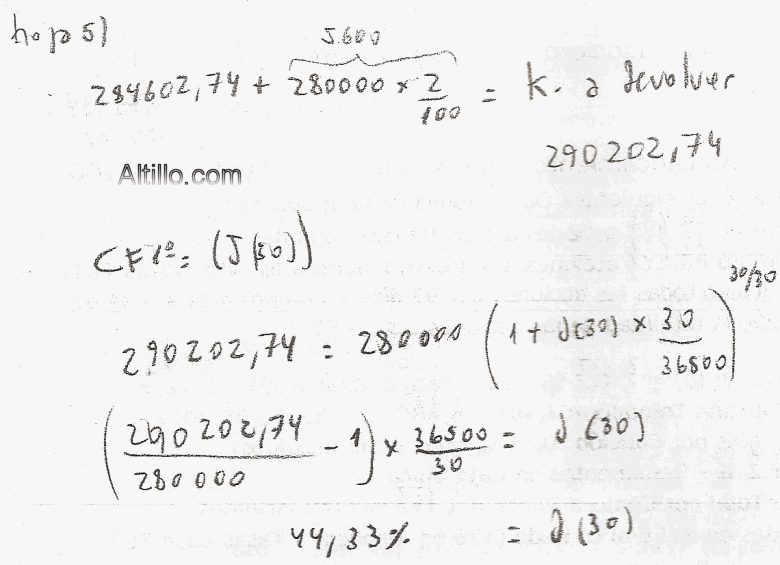 hoja 5)
5600
284602,74 + 280000 × 2/100 = K. a devolver
290202,74
Altillo.com
CF1º= (J(30))
290202,74 = 280000 (1 + J(30) × 30/36500)^30/30
(290202,74/280000 - 1) × 36500/30 = J(30)
44,33% = J(30)